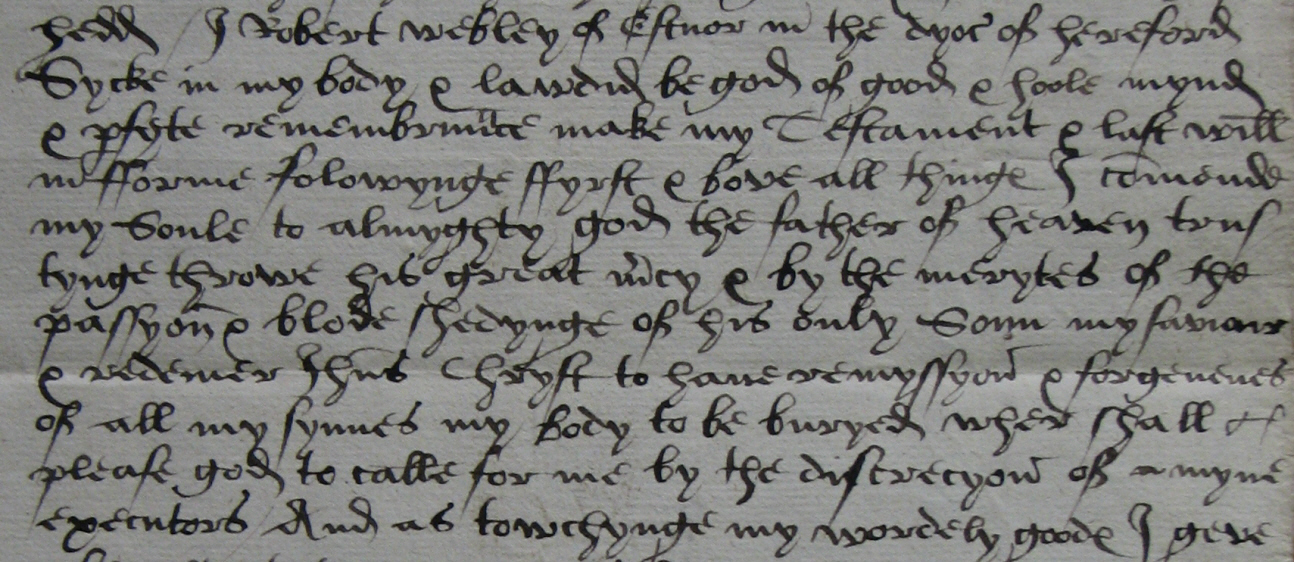 hedd / I Robert webley of Estnor in the dyoc of hereford
Sycke in my body & lawdid be god of good & hoole mynd
& pfyte remembraunce make my Testament & last will
in fforme folowynge ffyrst & bove all thinge I comende
my Soule to almyghty god the father of heaven trus
tynge throwe his great mcy & by the merytes of the
passyon & blode shedynge of his only Sonn my saviour
& redemer Jhus Chryst to have remyssyon & forgevenes
of all my synnes my body to be buryed wher shall
please god to calle for me by the discrecyon of myne
executors And as towchynge my wordely goode I geve